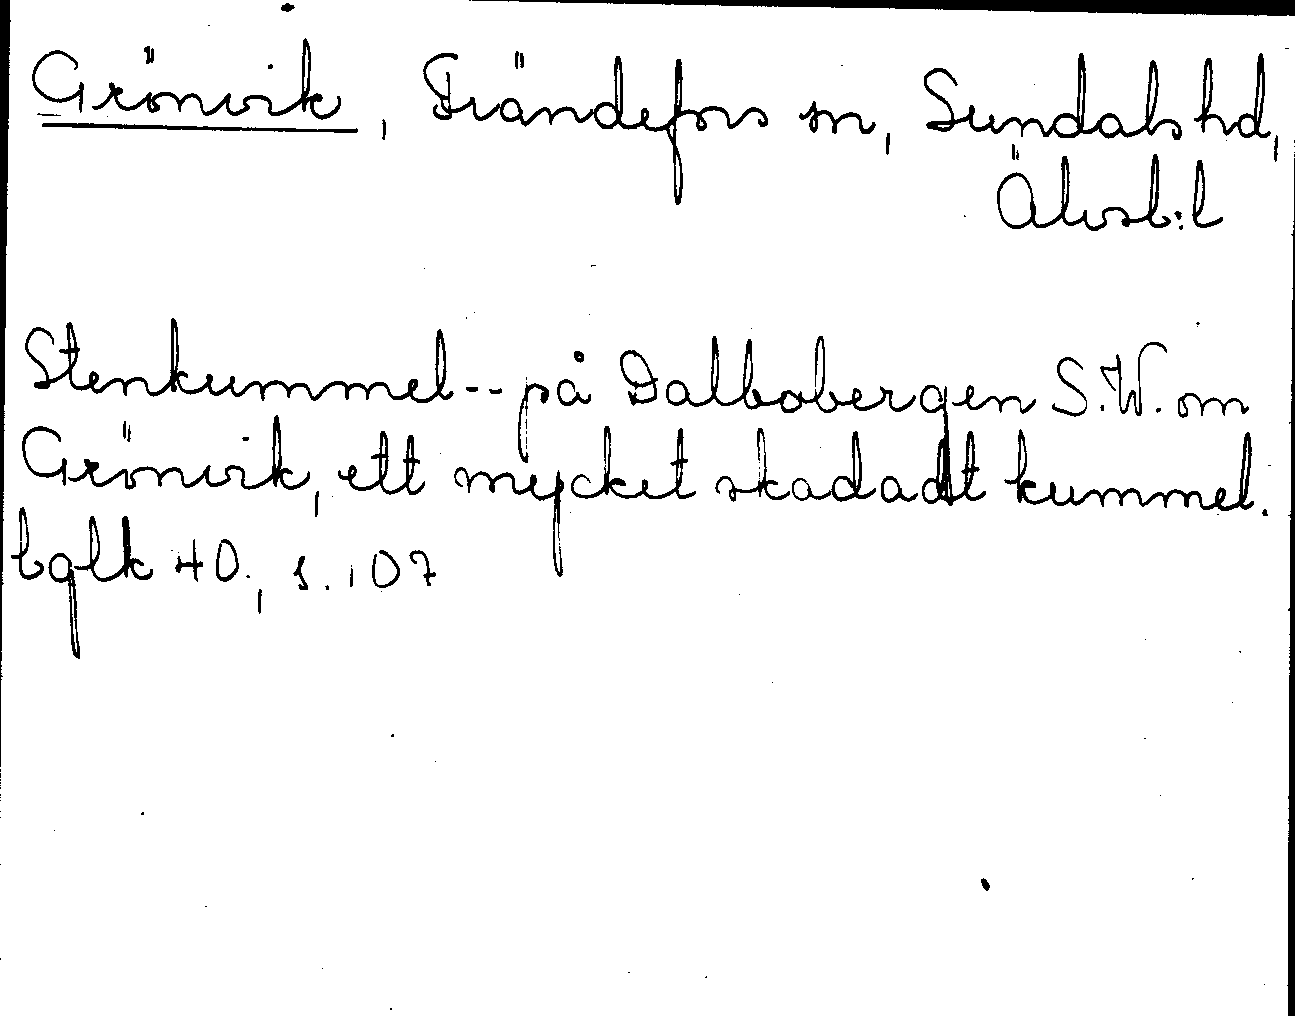 Grönvik, Frändefors sn, Sundals hd,
Älvsb:l
Stenkummel -- på Dalbobergen S.W. om
Grönvik, ett mycket skadadt kummel.
bglk 40., s. 107